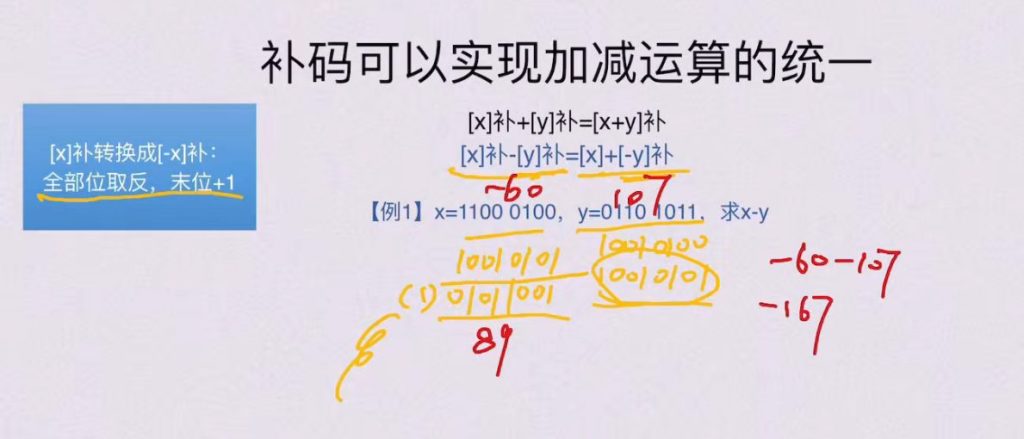 补码可以实现加减运算的统一
[x]补+[y]补=[x+y]补
[x]补转换成[-x]补：
全部位取反，末位+1
[x]补-[y]补=[x]+[-y]补
-60 107
【例1】x=1100 0100，y=0110 1011，求x-y
10010100
10010101 10010101
(1) 01011001
89
-60-107
-167